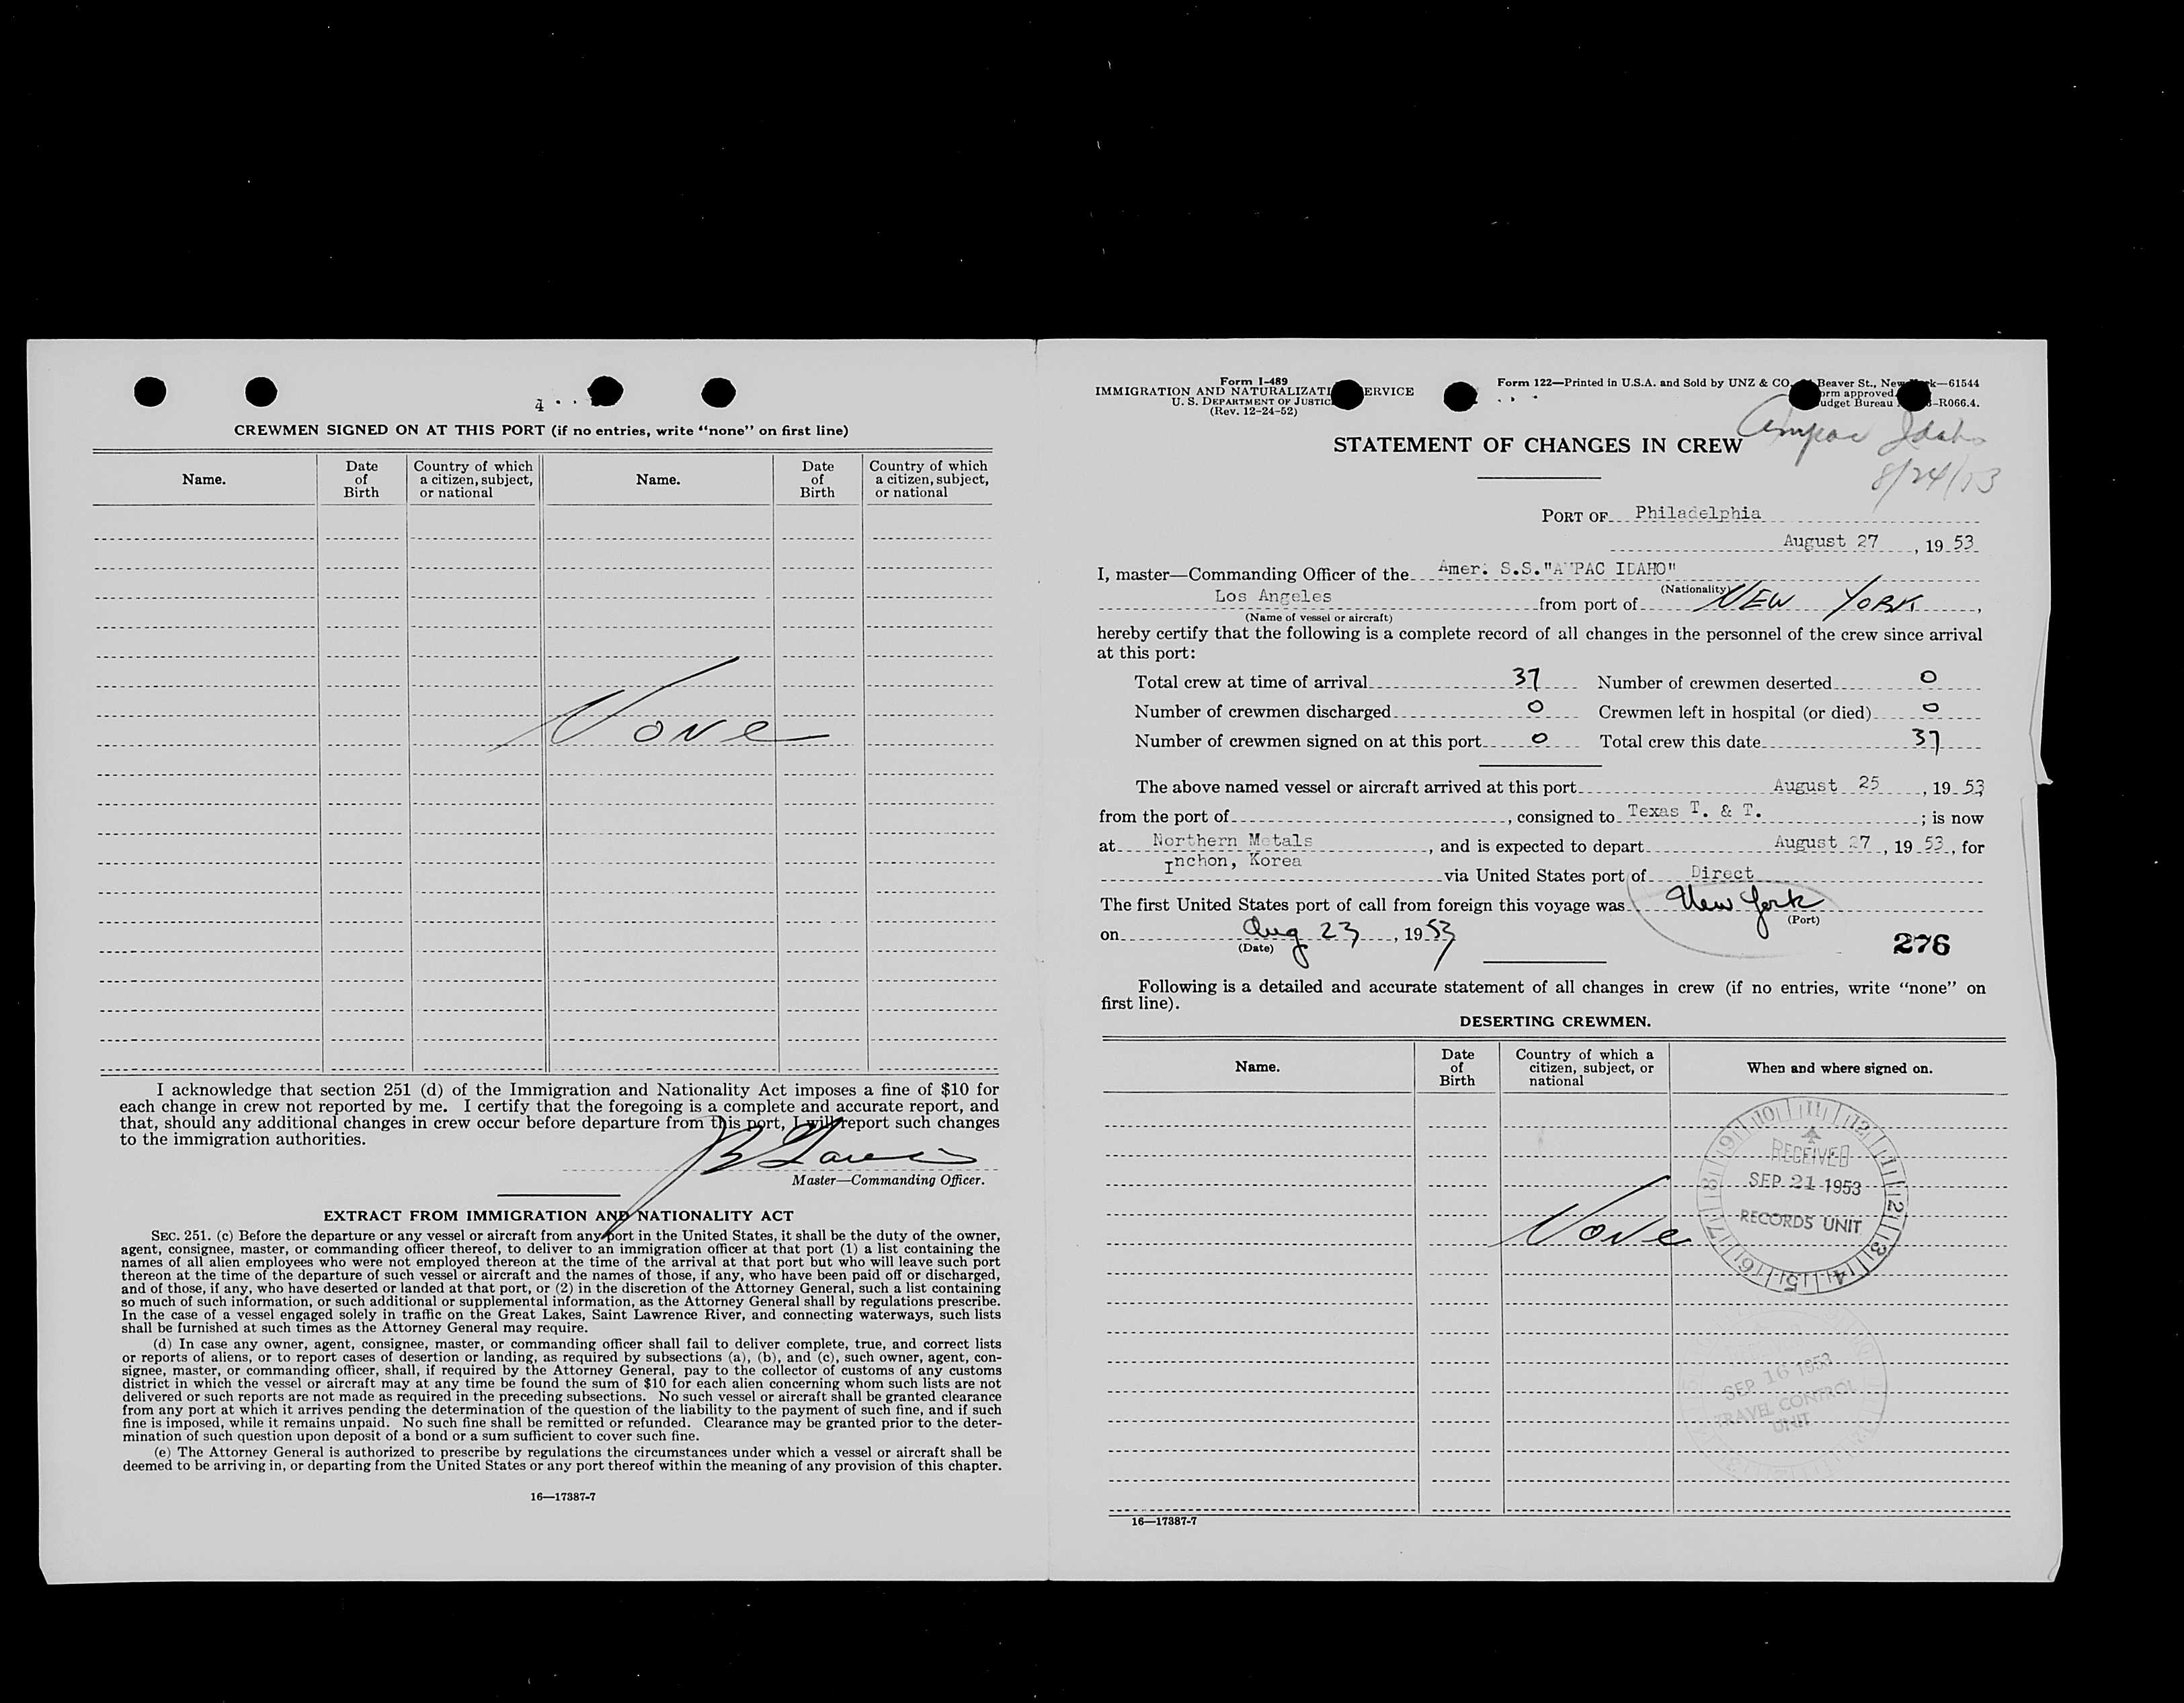 4
CREWMEN SIGNED ON AT THIS PORT (if no entries, write “none” on first line)
Name.
Date of Birth
Country of which a citizen, subject, or national
Name.
Date of Birth
Country of which a citizen, subject, or national
None
I acknowledge that section 251 (d) of the Immigration and Nationality Act imposes a fine of $10 for
each change in crew not reported by me. I certify that the foregoing is a complete and accurate report, and
that, should any additional changes in crew occur before departure from this port, I will report such changes
to the immigration authorities.
Master—Commanding Officer.
EXTRACT FROM IMMIGRATION AND NATIONALITY ACT
SEC. 251. (c) Before the departure or any vessel or aircraft from any port in the United States, it shall be the duty of the owner,
agent, consignee, master, or commanding officer thereof, to deliver to an immigration officer at that port (1) a list containing the
names of all alien employees who were not employed thereon at the time of the arrival at that port but who will leave such port
thereon at the time of the departure of such vessel or aircraft and the names of those, if any, who have been paid off or discharged,
and of those, if any, who have deserted or landed at that port, or (2) in the discretion of the Attorney General, such a list containing
so much of such information, or such additional or supplemental information, as the Attorney General shall by regulations prescribe.
In the case of a vessel engaged solely in traffic on the Great Lakes, Saint Lawrence River, and connecting waterways, such lists
shall be furnished at such times as the Attorney General may require.
(d) In case any owner, agent, consignee, master, or commanding officer shall fail to deliver complete, true, and correct lists
or reports of aliens, or to report cases of desertion or landing, as required by subsections (a), (b), and (c), such owner, agent, con-
signee, master, or commanding officer, shall, if required by the Attorney General, pay to the collector of customs of any customs
district in which the vessel or aircraft may at any time be found the sum of $10 for each alien concerning whom such lists are not
delivered or such reports are not made as required in the preceding subsections. No such vessel or aircraft shall be granted clearance
from any port at which it arrives pending the determination of the question of the liability to the payment of such fine, and if such
fine is imposed, while it remains unpaid. No such fine shall be remitted or refunded. Clearance may be granted prior to the deter-
mination of such question upon deposit of a bond or a sum sufficient to cover such fine.
(e) The Attorney General is authorized to prescribe by regulations the circumstances under which a vessel or aircraft shall be
deemed to be arriving in, or departing from the United States or any port thereof within the meaning of any provision of this chapter.
16—17387-7
Form I-489
IMMIGRATION AND NATURALIZATI ERVICE
U. S. DEPARTMENT OF JUSTIC
(Rev. 12-24-52)
Form 122—Printed in U.S.A. and Sold by UNZ & CO. Beaver St., New k—61544
orm approved
udget Bureau -R066.4.
Ampac Idaho
8/24/53
STATEMENT OF CHANGES IN CREW
PORT OF Philadelphia
August 27, 19 53
I, master—Commanding Officer of the Amer. S.S."A PAC IDAHO"
(Nationality)
Los Angeles from port of NEW YORK,
(Name of vessel or aircraft)
hereby certify that the following is a complete record of all changes in the personnel of the crew since arrival
at this port:
Total crew at time of arrival 37 Number of crewmen deserted 0
Number of crewmen discharged 0 Crewmen left in hospital (or died) 0
Number of crewmen signed on at this port 0 Total crew this date 37
The above named vessel or aircraft arrived at this port August 25, 19 53
from the port of , consigned to Texas T. & T. ; is now
at Northern Metals, and is expected to depart August 27, 19 53, for
Inchon, Korea via United States port of Direct
The first United States port of call from foreign this voyage was New York
(Port)
on Aug 23, 1953
(Date)
276
Following is a detailed and accurate statement of all changes in crew (if no entries, write “none” on
first line).
DESERTING CREWMEN.
Name.
Date of Birth
Country of which a citizen, subject, or national
When and where signed on.
None
10 11 12 1 2 3 4 5 6 7 8 9
RECEIVED
SEP 21 1953
RECORDS UNIT
SEP 16 1953
TRAVEL CONTROL
UNIT
16—17387-7